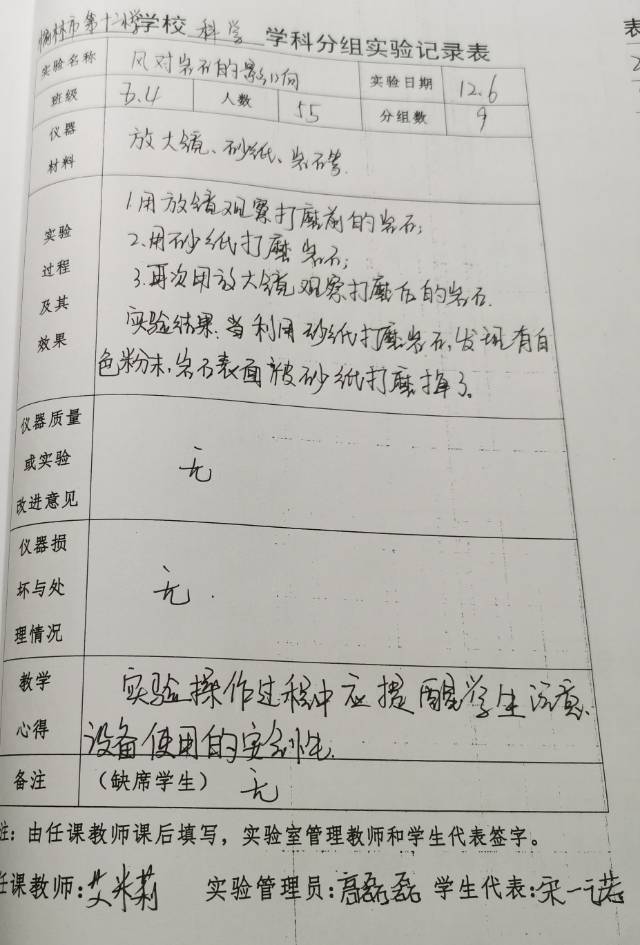 榆林市第十二小学学校 科学 学科分组实验记录表
实验名称 风对岩石的影响 实验日期 12.6
班级 5.4 人数 55 分组数 9
仪器材料 放大镜、砂纸、岩石等.
实验过程及其效果 1.用放镜观察打磨前的岩石;
2.用砂纸打磨岩石;
3.再次用放大镜观察打磨后的岩石.
实验结果:当利用砂纸打磨岩石,发现有白
色粉末,岩石表面被砂纸打磨掉了。
仪器质量或实验改进意见 无
仪器损坏与处理情况 无.
教学心得 实验操作过程中应提醒学生注意
设备使用的安全性.
备注 (缺席学生) 无
注:由任课教师课后填写,实验室管理教师和学生代表签字。
任课教师:艾米莉 实验管理员:高磊磊 学生代表:宋一诺
表